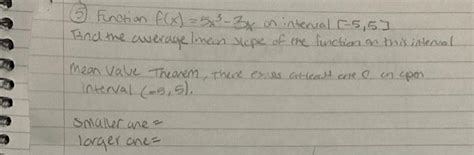 ⑤ Function f(x) = 5x³ - 3x on interval [-5, 5]
Find the average/mean slope of the function on this interval
Mean Value Theorem, there exists at least one c on open
interval (-5, 5).
smaller one =
larger one =